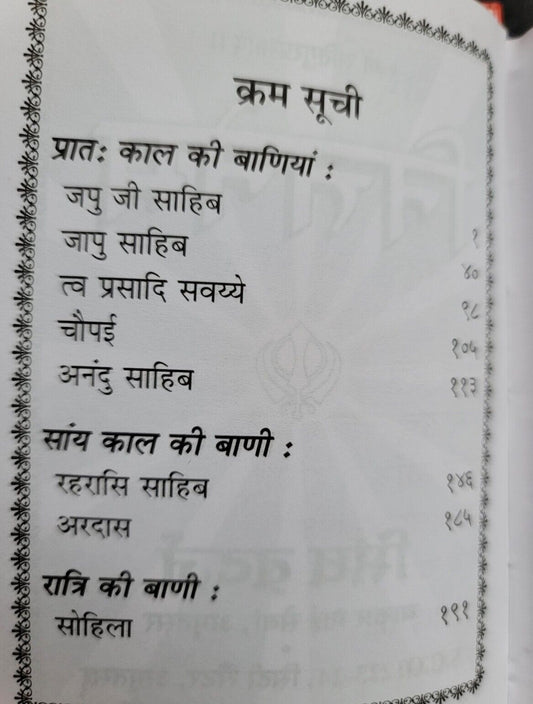 क्रम सूची
प्रातः काल की बाणियां :
जपु जी साहिब १
जापु साहिब ४०
त्व प्रसादि सवय्ये ९८
चौपई १०५
अनंदु साहिब ११३
सांय काल की बाणी :
रहरासि साहिब १४६
अरदास १८५
रात्रि की बाणी :
सोहिला १९१